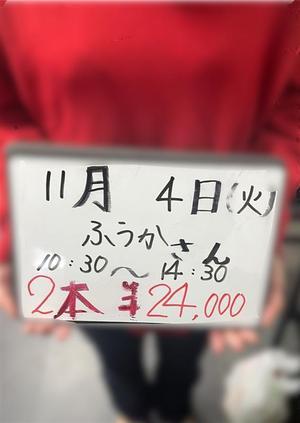 11月 4日(火)
ふうかさん
10:30〜14:30
2本 ¥24,000